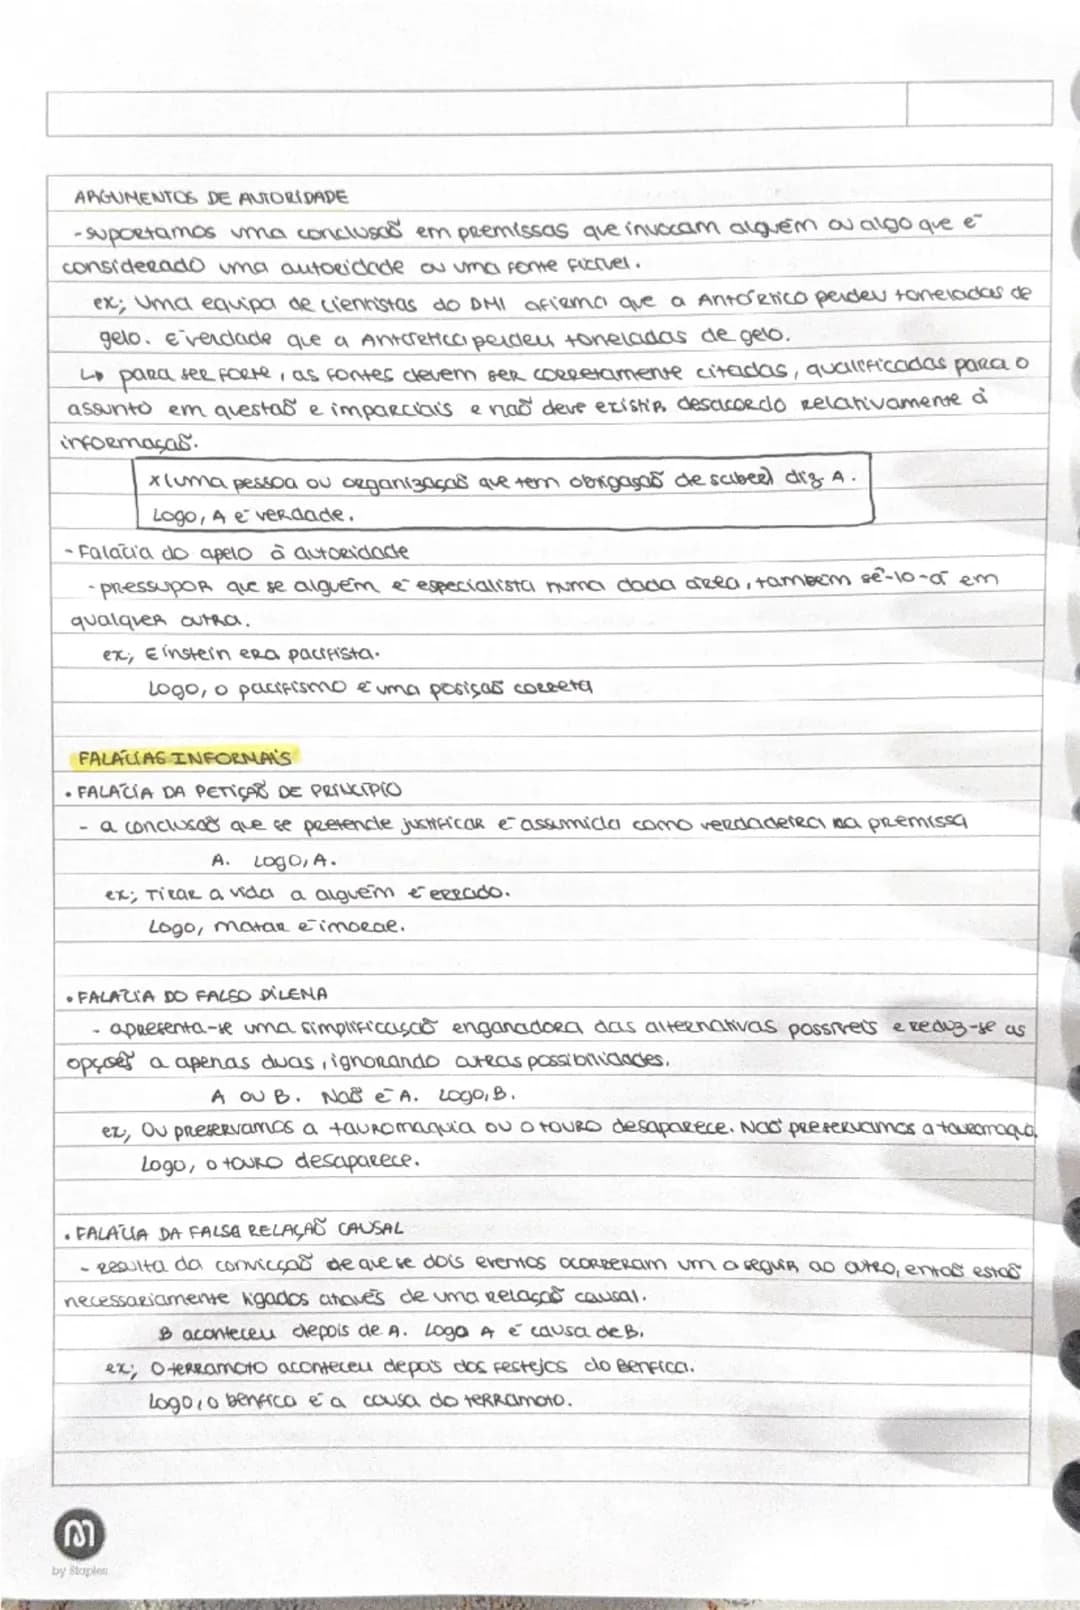 ARGUMENTOS DE AUTORIDADE
- suportamos uma conclusão em premissas que invocam alguém ou algo que é
considerado uma autoridade ou uma fonte fiável.
ex; Uma equipa de cientistas do DMI afirma que a Antártico perdeu toneladas de
gelo. É verdade que a Antártica perdeu toneladas de gelo.
↳ para ser forte, as fontes devem ser corretamente citadas, qualificadas para o
assunto em questão e imparciais e não deve existir desacordo relativamente à
informação.
x (uma pessoa ou organização que tem obrigação de saber) diz A.
Logo, A é verdade.
- Falácia do apelo à autoridade
- pressupor que se alguém é especialista numa dada área, também sê-lo-á em
qualquer outra.
ex; Einstein era pacifista.
Logo, o pacifismo é uma posição correta
FALÁCIAS INFORMAIS
• FALÁCIA DA PETIÇÃO DE PRINCÍPIO
- a conclusão que se pretende justificar é assumida como verdadeira na premissa
A. Logo, A.
ex; Tirar a vida a alguém é errado.
Logo, matar é imoral.
• FALÁCIA DO FALSO DILEMA
- apresenta-se uma simplificação enganadora das alternativas possíveis e reduz-se as
opções a apenas duas, ignorando outras possibilidades.
A ou B. Não é A. Logo, B.
ex; Ou preservamos a tauromaquia ou o touro desaparece. Não preservamos a tauromaquia.
Logo, o touro desaparece.
• FALÁCIA DA FALSA RELAÇÃO CAUSAL
- resulta da convicção de que se dois eventos ocorreram um a seguir ao outro, então estão
necessariamente ligados através de uma relação causal.
B aconteceu depois de A. Logo A é causa de B.
ex; O terramoto aconteceu depois dos festejos do Benfica.
Logo, o benfica é a causa do terramoto.
by Staples